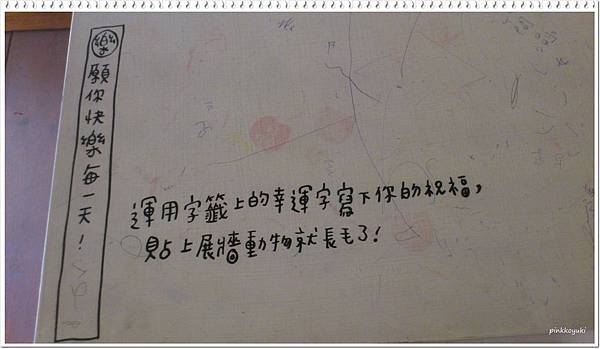 樂
願你快樂每一天!
運用字籤上的幸運字寫下你的祝福,
貼上展牆動物就長毛了!
pinkkoyuki